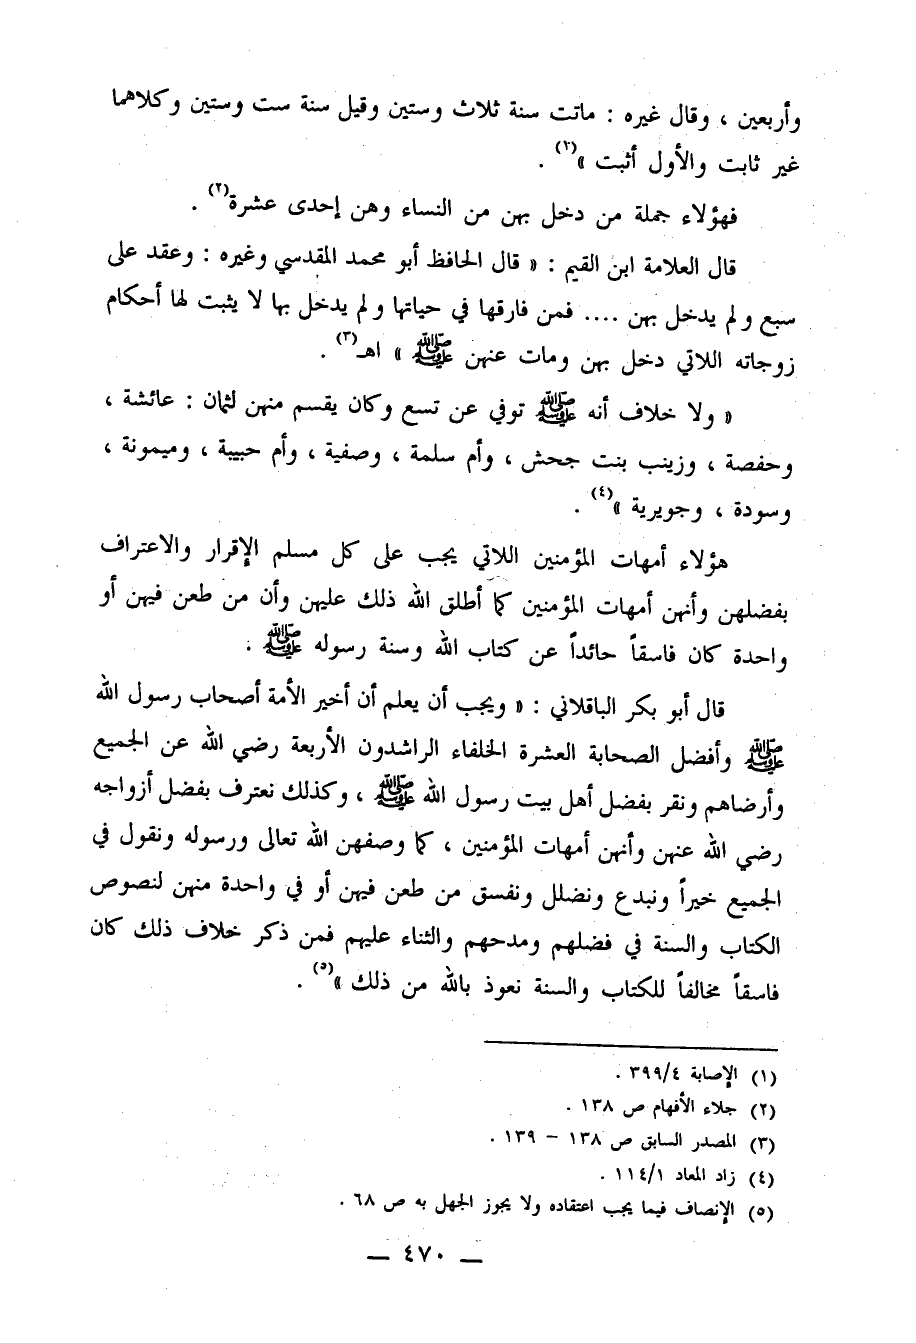 وأربعين ، وقال غيره : ماتت سنة ثلاث وستين وقيل سنة ست وستين وكلاهما
غير ثابت والأول أثبت »(٢) .
فهؤلاء جملة من دخل بهن من النساء وهن إحدى عشرة(٢) .
قال العلامة ابن القيم : « قال الحافظ أبو محمد المقدسي وغيره : وعقد على
سبع ولم يدخل بهن .... فمن فارقها في حياتها ولم يدخل بها لا يثبت لها أحكام
زوجاته اللاتي دخل بهن ومات عنهن ﷺ » اهـ(٣) .
« ولا خلاف أنه ﷺ توفي عن تسع وكان يقسم منهن لثمان : عائشة ،
وحفصة ، وزينب بنت جحش ، وأم سلمة ، وصفية ، وأم حبيبة ، وميمونة ،
وسودة ، وجويرية »(٤) .
هؤلاء أمهات المؤمنين اللاتي يجب على كل مسلم الإقرار والاعتراف
بفضلهن وأنهن أمهات المؤمنين كما أطلق الله ذلك عليهن وأن من طعن فيهن أو
واحدة كان فاسقاً حائداً عن كتاب الله وسنة رسوله ﷺ .
قال أبو بكر الباقلاني : « ويجب أن يعلم أن أخير الأمة أصحاب رسول الله
ﷺ وأفضل الصحابة العشرة الخلفاء الراشدون الأربعة رضي الله عن الجميع
وأرضاهم ونقر بفضل أهل بيت رسول الله ﷺ ، وكذلك نعترف بفضل أزواجه
رضي الله عنهن وأنهن أمهات المؤمنين ، كما وصفهن الله تعالى ورسوله ونقول في
الجميع خيراً ونبدع ونضلل ونفسق من طعن فيهن أو في واحدة منهن لنصوص
الكتاب والسنة في فضلهم ومدحهم والثناء عليهم فمن ذكر خلاف ذلك كان
فاسقاً مخالفاً للكتاب والسنة نعوذ بالله من ذلك »(٥) .
(١) الإصابة ٣٩٩/٤ .
(٢) جلاء الأفهام ص ١٣٨ .
(٣) المصدر السابق ص ١٣٨ – ١٣٩ .
(٤) زاد المعاد ١١٤/١ .
(٥) الإنصاف فيما يجب اعتقاده ولا يجوز الجهل به ص ٦٨ .
— ٤٧٠ —